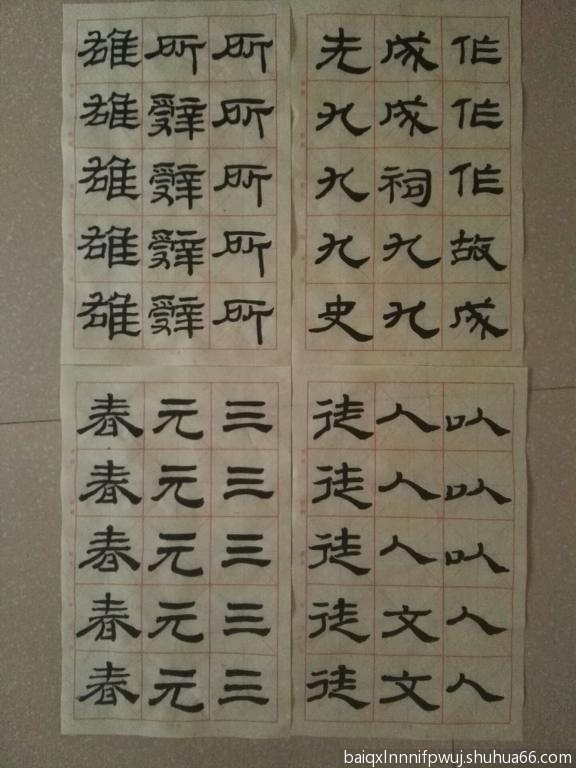 作作作故成
成成祠九九
先九九九史
所所所所所
所辭辭辭辭
雄雄雄雄雄
以以以人人
人人人文文
徒徒徒徒徒
三三三三三
元元元元元
春春春春春
baiqxlnnnifpwuj.shuhua66.com